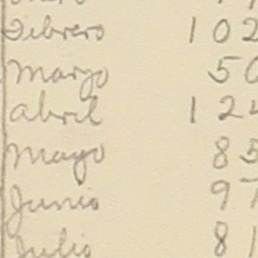 Febrero 102
Marzo 50
Abril 124
Mayo 85
Junio 97
Julio 81